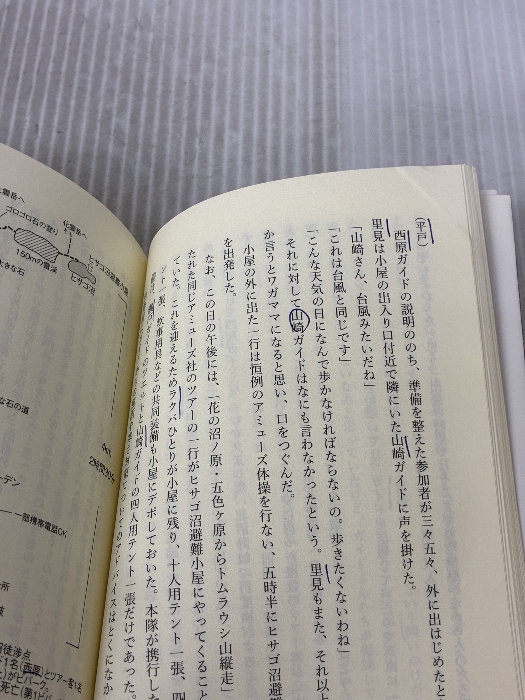 （平戸）
西原ガイドの説明ののち、準備を整えた参加者が三々五々、外に出はじめたと
里見は小屋の出入り口付近で隣にいた山崎ガイドに声を掛けた。
「山崎さん、台風みたいだね」
「これは台風と同じです」
「こんな天気の日になんで歩かなければならないの。歩きたくないわね」
それに対して山崎ガイドはなにも言わなかったという。里見もまた、それ以上
か言うとワガママになると思い、口をつぐんだ。
小屋の外に出た一行は恒例のアミューズ体操を行ない、五時半にヒサゴ沼避難
を出発した。
なお、この日の午後には、一花の沼ノ原・五色ヶ原からトムラウシ山縦走」
たれた同じアミューズ社のツアーの一行がヒサゴ沼避難小屋にやってくること
ていた。これを迎えるためラクパひとりが小屋に残り、十人用テント一張、四
ント一張、炊事用具などの共同装備も小屋にデポしておいた。本隊が携行した
ガイドのツエルトと山崎ガイドの四人用テント一張だけであった。
アドバイスはとくになか
雲岳へ
ゴロゴロ石の登り
150mの雪渓
大きな石
化雲岳へ
ヒサゴ沼避難小屋
ヒサゴ沼
な石の道
ーデン
携帯電話OK